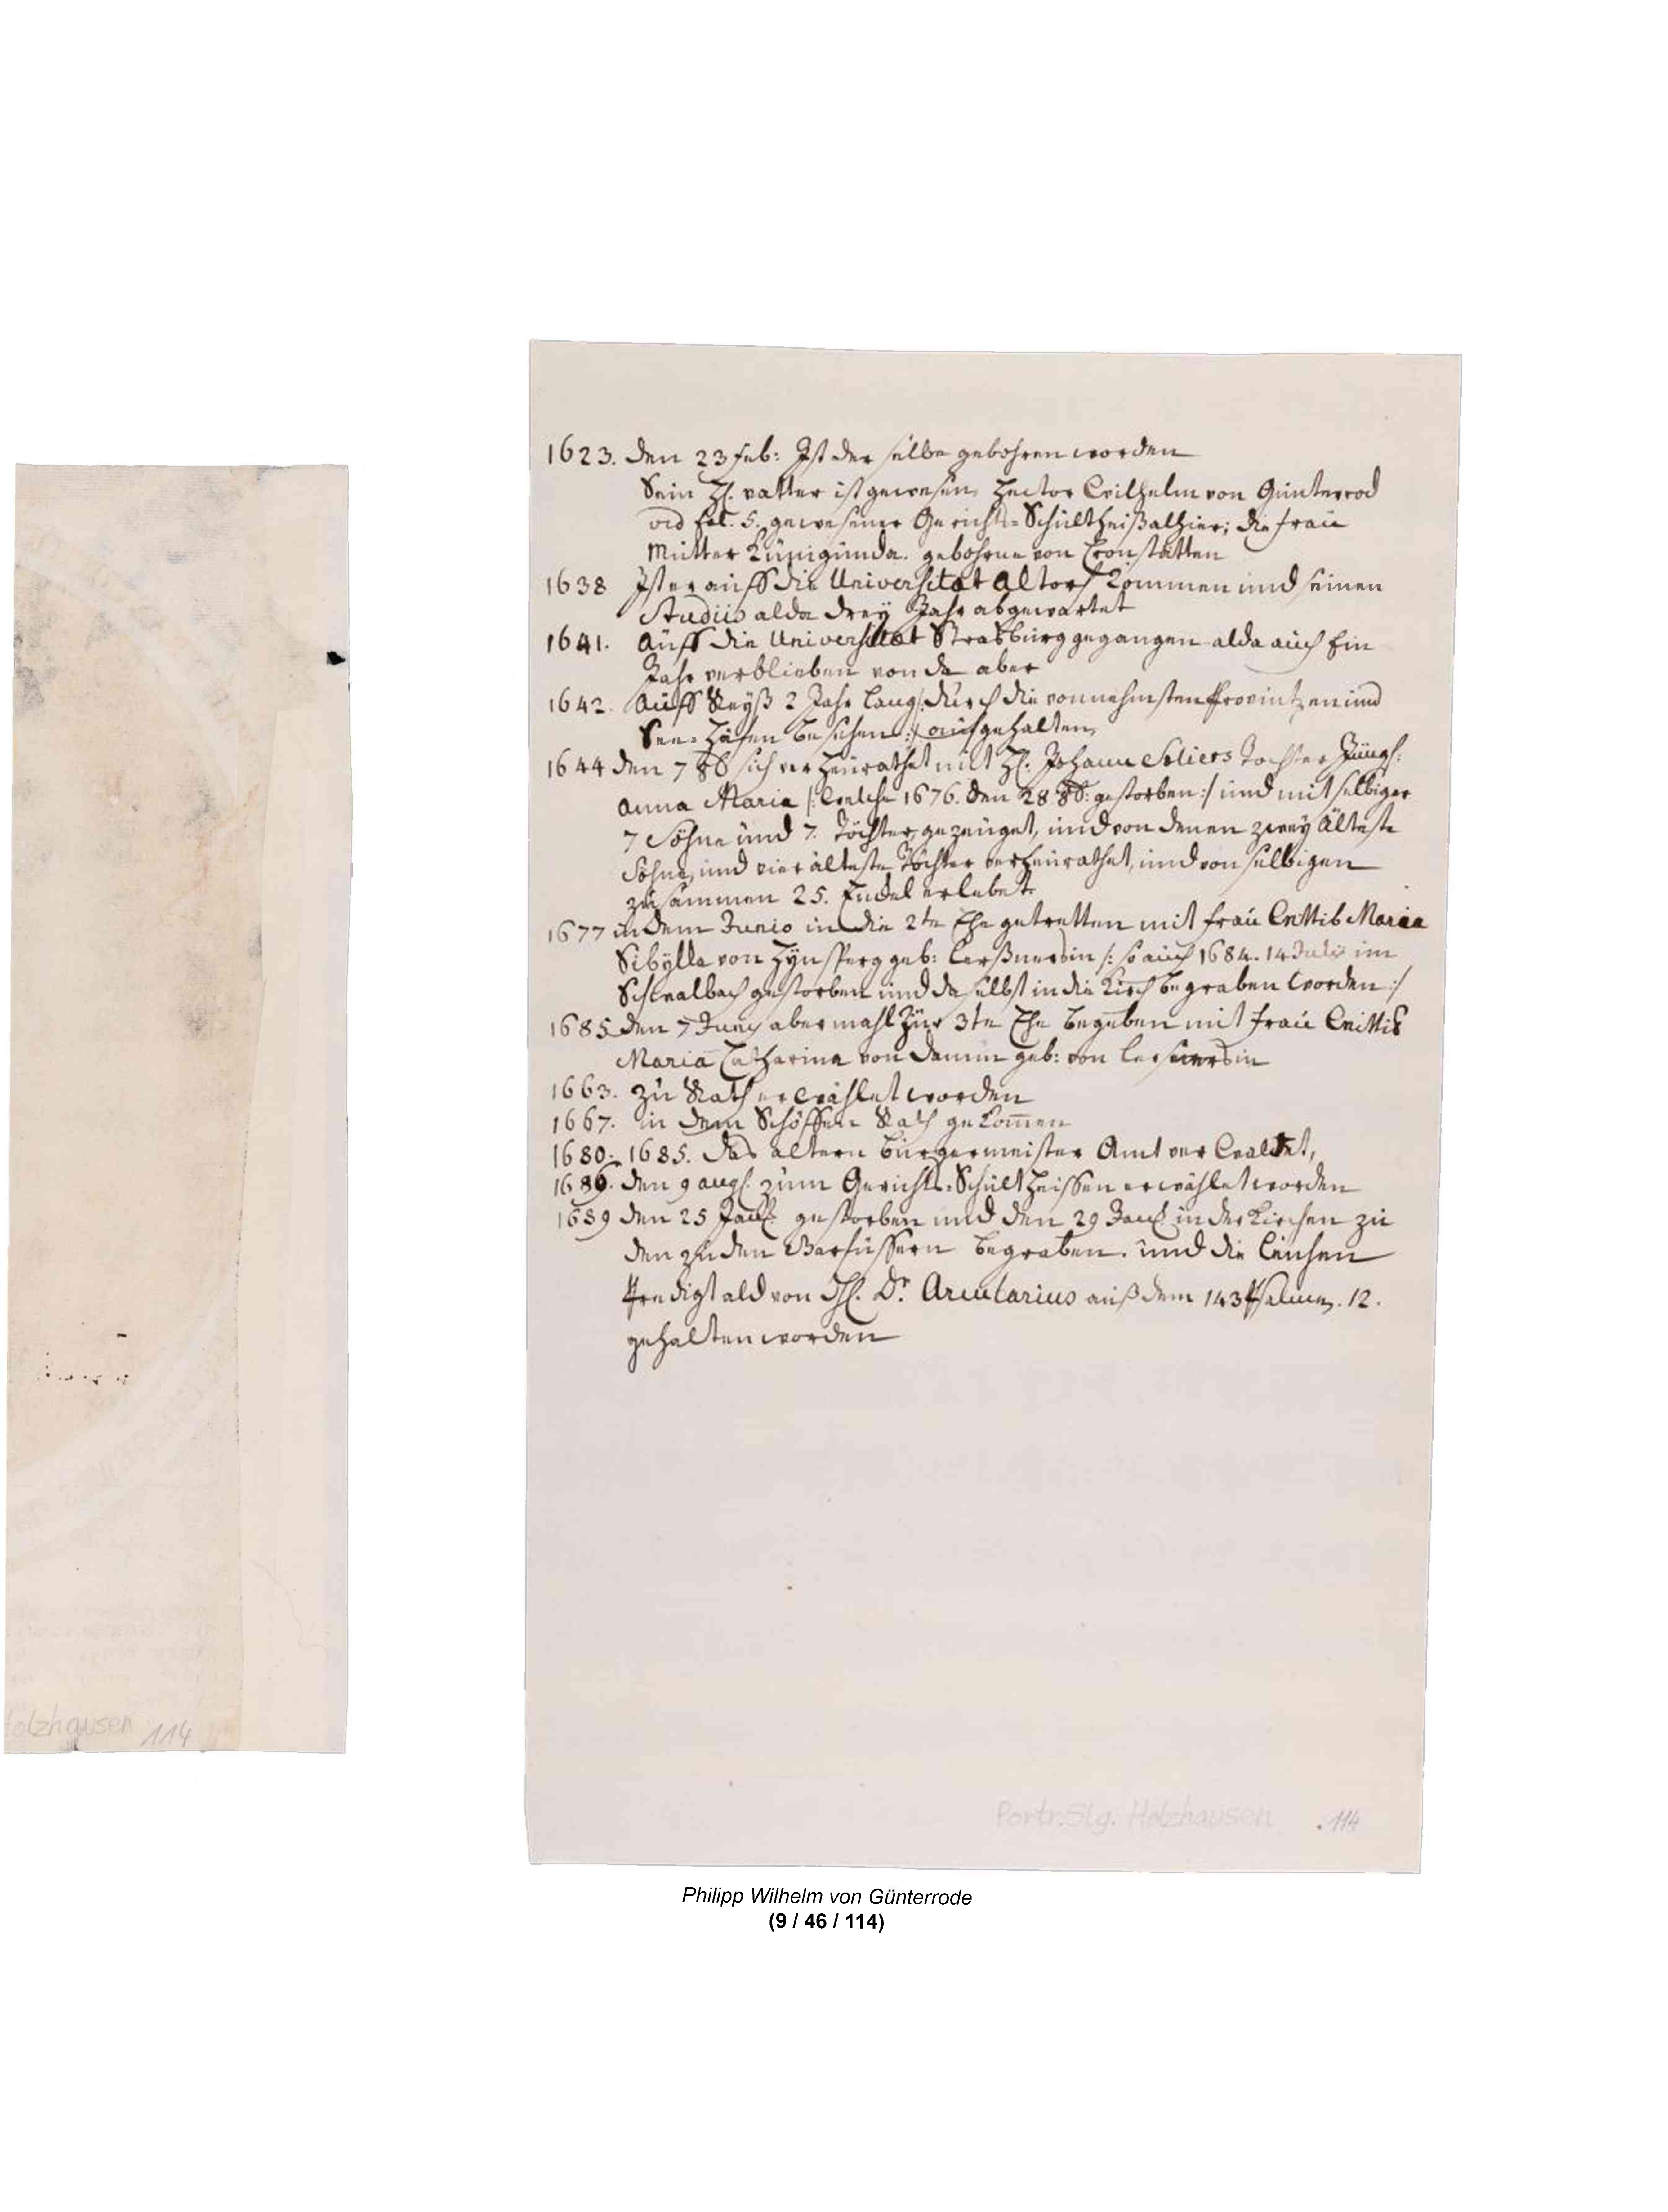 1623. den 23 feb: Ist der selbe gebohren worden
Sein H. vatter ist gewesen, Hector Wilhelm von Günterrod
vid fol. 5. gewesener Gerichts=Schültheiß alhier; die fraü
Mütter Künigünda. gebohrne von Cronstätten
1638 Ist er aüff die Universitæt Altorf kommen und seinen
Studiis alda dreÿ Jahr abgewartet
1641. Aüff die Universitæt Strasbürg gegangen alda auch Ein
Jahr verblieben von da aber
1642. Aüff Reyß 2 Jahr lang /: dürch die vornehmsten Provintzen ünd
See=Häfen besehen :/ aüfgehalten,
1644 den 7 8b sich verheürathet mit H: Johann Soliers Tochter Jüngf:
Anna Maria /: Welche 1676. den 28. 8b: gestorben :/ ünd mit selbiger
7 Söhne ünd 7. Töchter gezeüget, ünd von denen zweÿ Älteste
Söhne, ünd vier älteste Töchter verheürathet, ünd von selbigen
züsammen 25. Enckel erlebet
1677 in dem Junio in die 2te Ehe getretten mit fraü Wittib Maria
Sibÿlla von Hÿnsperg geb: Lerßnersin /: so aüch 1684. 14 Julii im
Schwalbach gestorben ünd da selbst in die Kirch begraben Worden :/
1685 den 7 Junÿ abermahl Zür 3te Ehe begeben mit fraü Wittib
Maria Catharina von Damm geb: von Lersnersin
1663. zü Rath erwählet worden
1667. in dem Schöffen Rath gekom̄en
1680. 1685. das ältern Bürgermeister Amt verwaltet,
1686. den 9 aug. züm Gerichts=Schültheissen erwählet worden
1689 den 25 Jan gestorben und den 29 Jan in der Kirchen zü
den zü den Barfüssern begraben. ünd die Leichen
Predigt ald von H. Dr. Arcularius aüß dem 143 Psalmen. 12.
gehalten worden
olzhausen 114
Portr. Slg. Holzhausen .114
Philipp Wilhelm von Günterrode
(9 / 46 / 114)